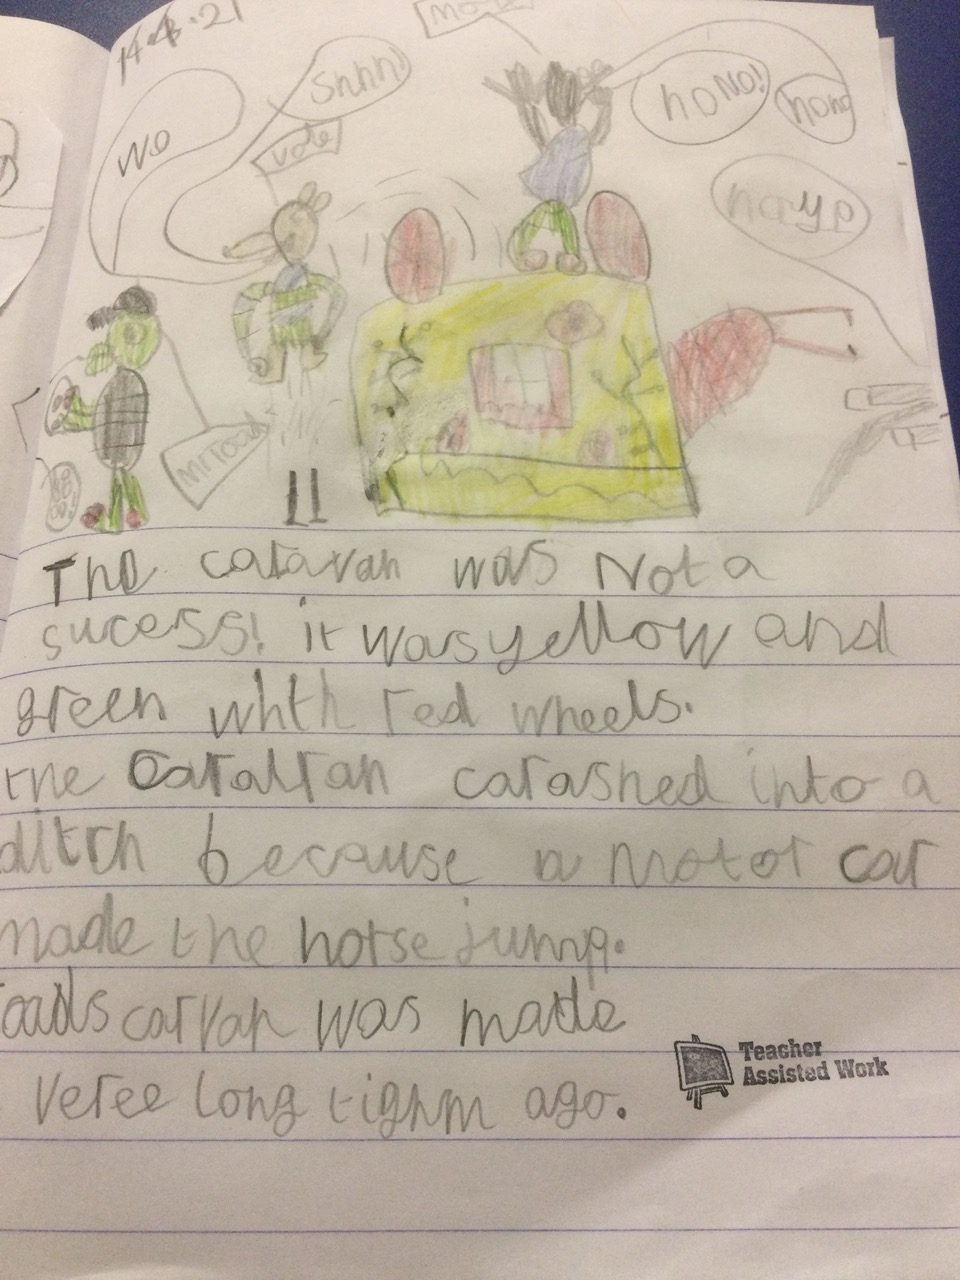 14.4.21
Shhh!
wo
vole
hoNo!
hono
hayp
mr toad
The caravan was Not a
sucess! it was yellow and
green whth red wheels.
the caralran carashed into a
ditch because a motor car
made the horse jump.
toads carvan was made
veree long tighm ago.
Teacher
Assisted Work